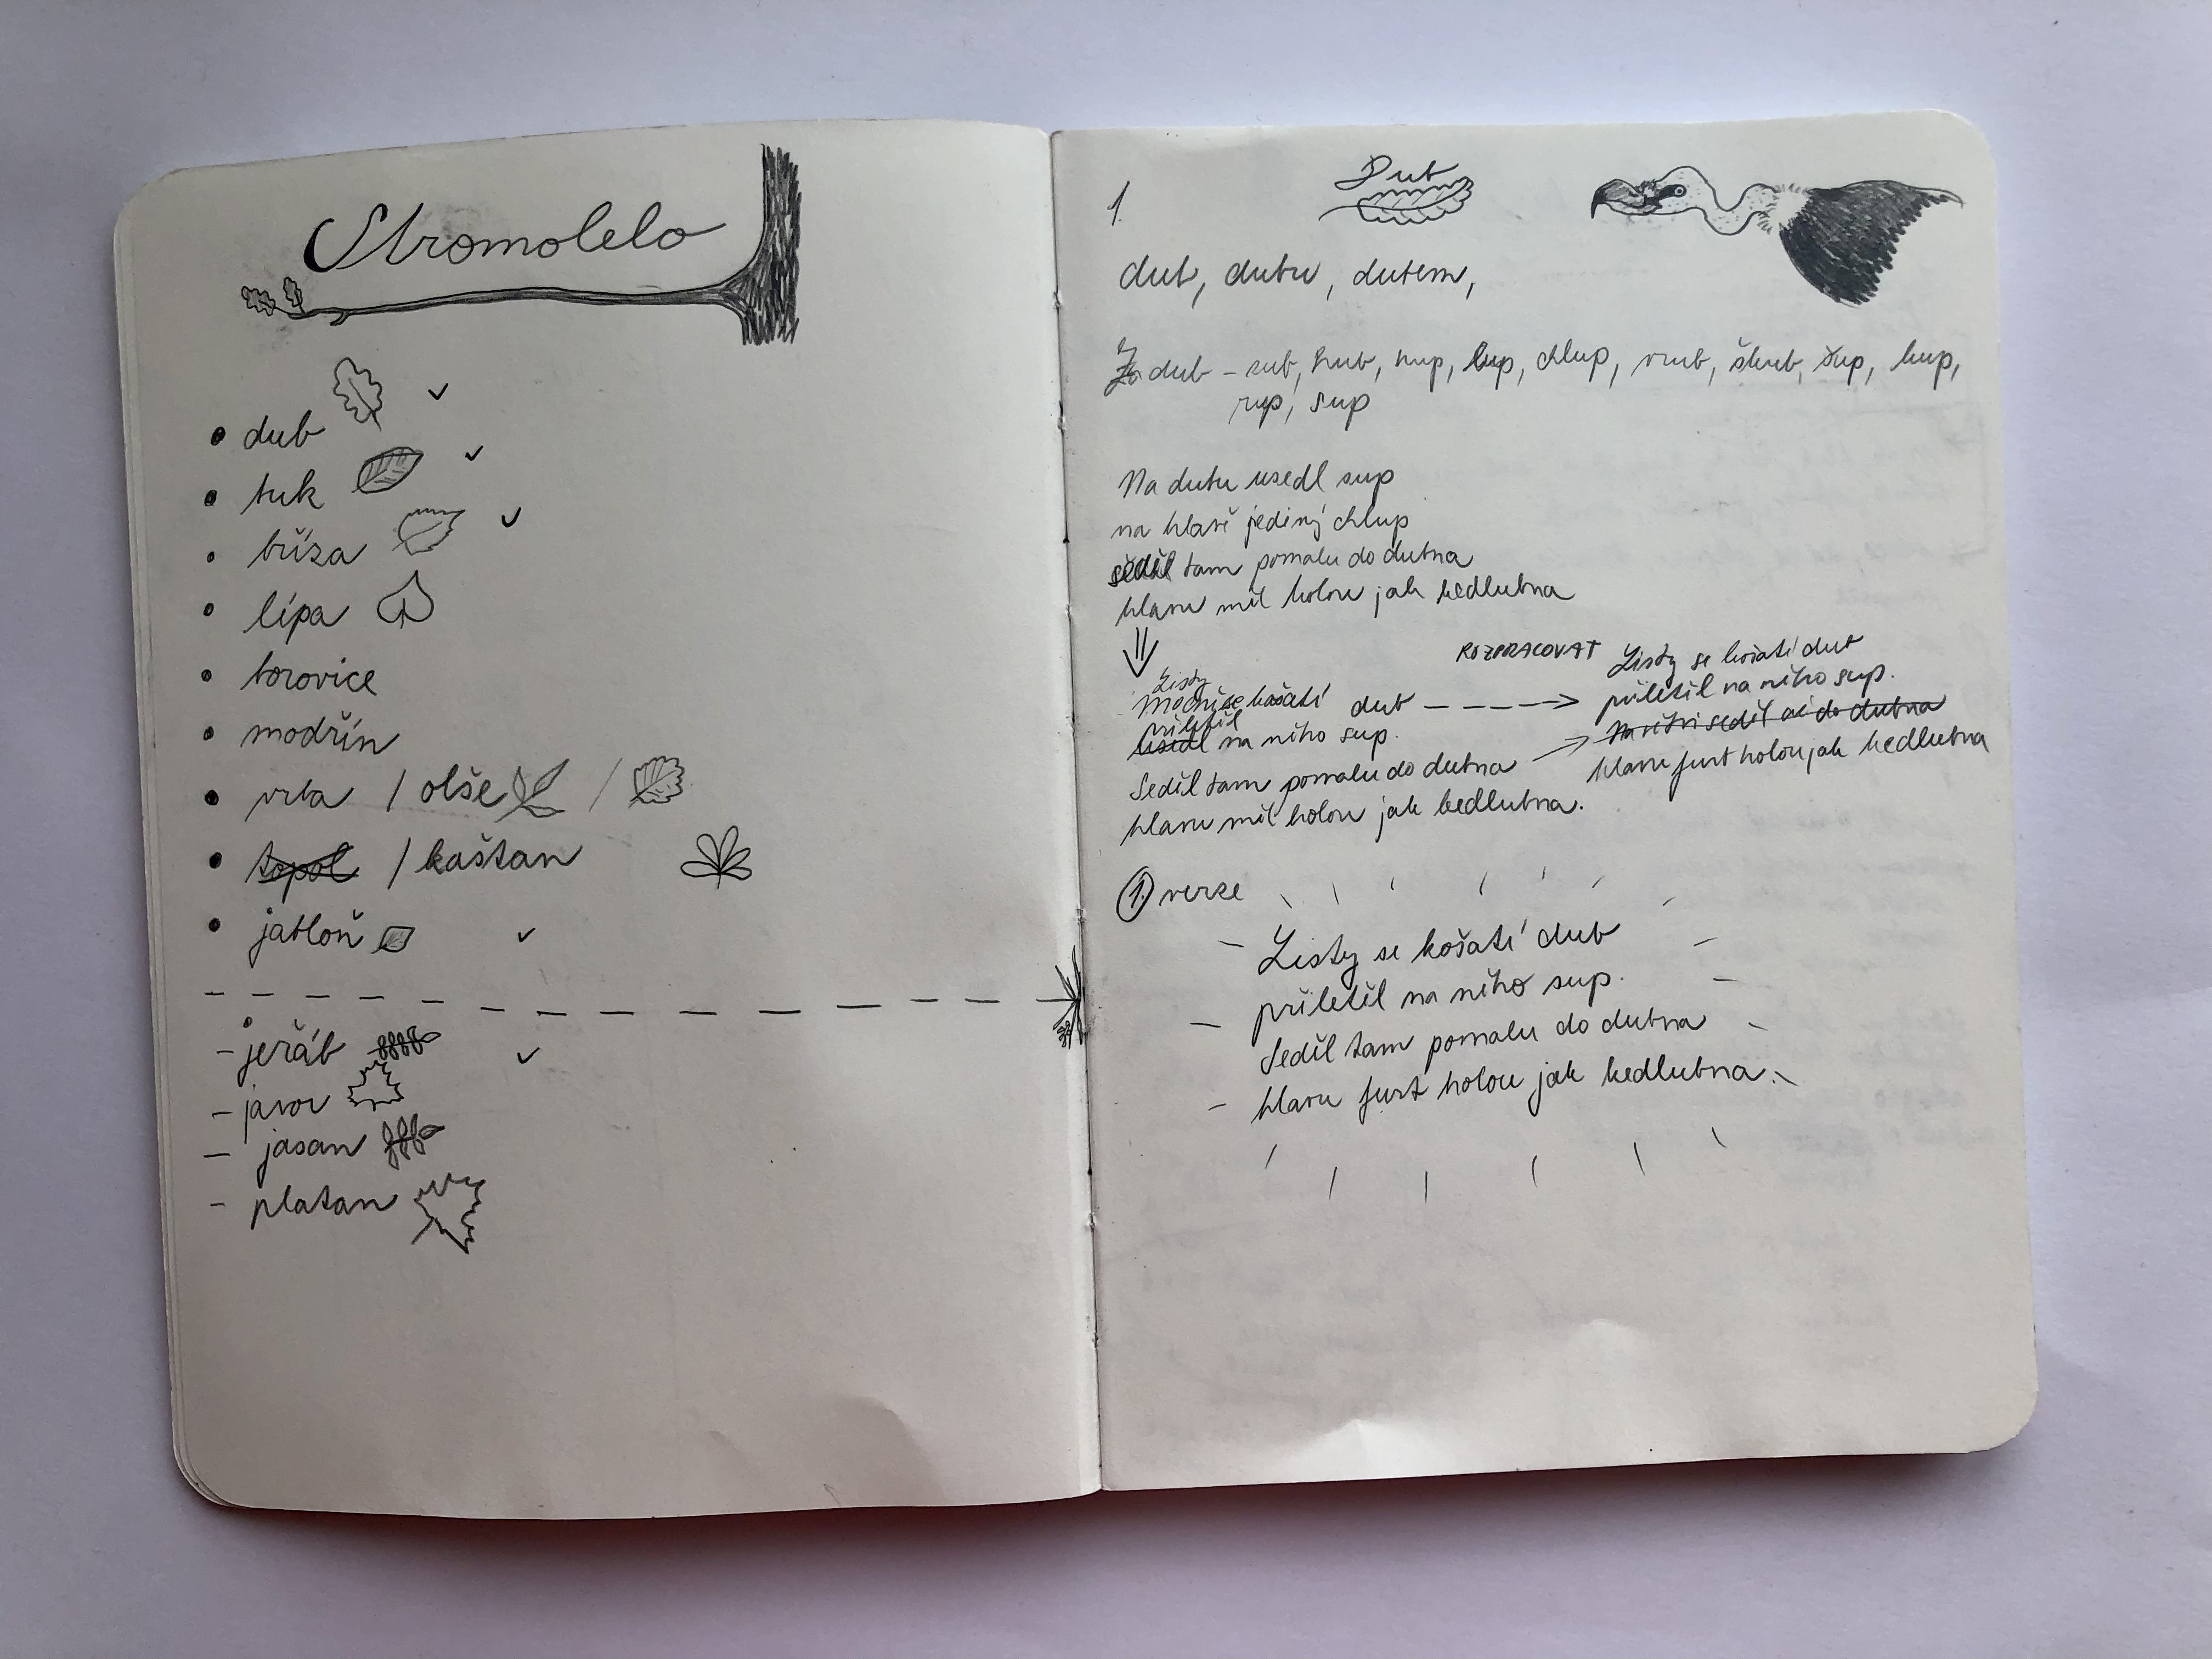 Stromolelo
dub
buk
bříza
lípa
borovice
modřín
vrba / olše /
topol / kaštan
jabloň
- jeřáb
- javor
- jasan
- platan
1.
Dub
dub, dubu, dubem,
dub - zub, hub, nup, lup, chlup, vrub, škub, šup, kup,
rup, sup
Na dubu usedl sup
na hlavě jediný chlup
seděl tam pomalu do dubna
hlavu měl holou jak kedlubna
ROZPRACOVAT
Listy
Mocně se košatí dub
přiletěl
usedl na něho sup.
Seděl tam pomalu do dubna
hlavu měl holou jak kedlubna.
Listy se košatí dub
přiletěl na něho sup.
Na větvi seděl až do dubna
hlavu furt holou jak kedlubna
1. verze
Listy se košatí dub
přiletěl na něho sup.
Seděl tam pomalu do dubna
hlavu furt holou jak kedlubna.